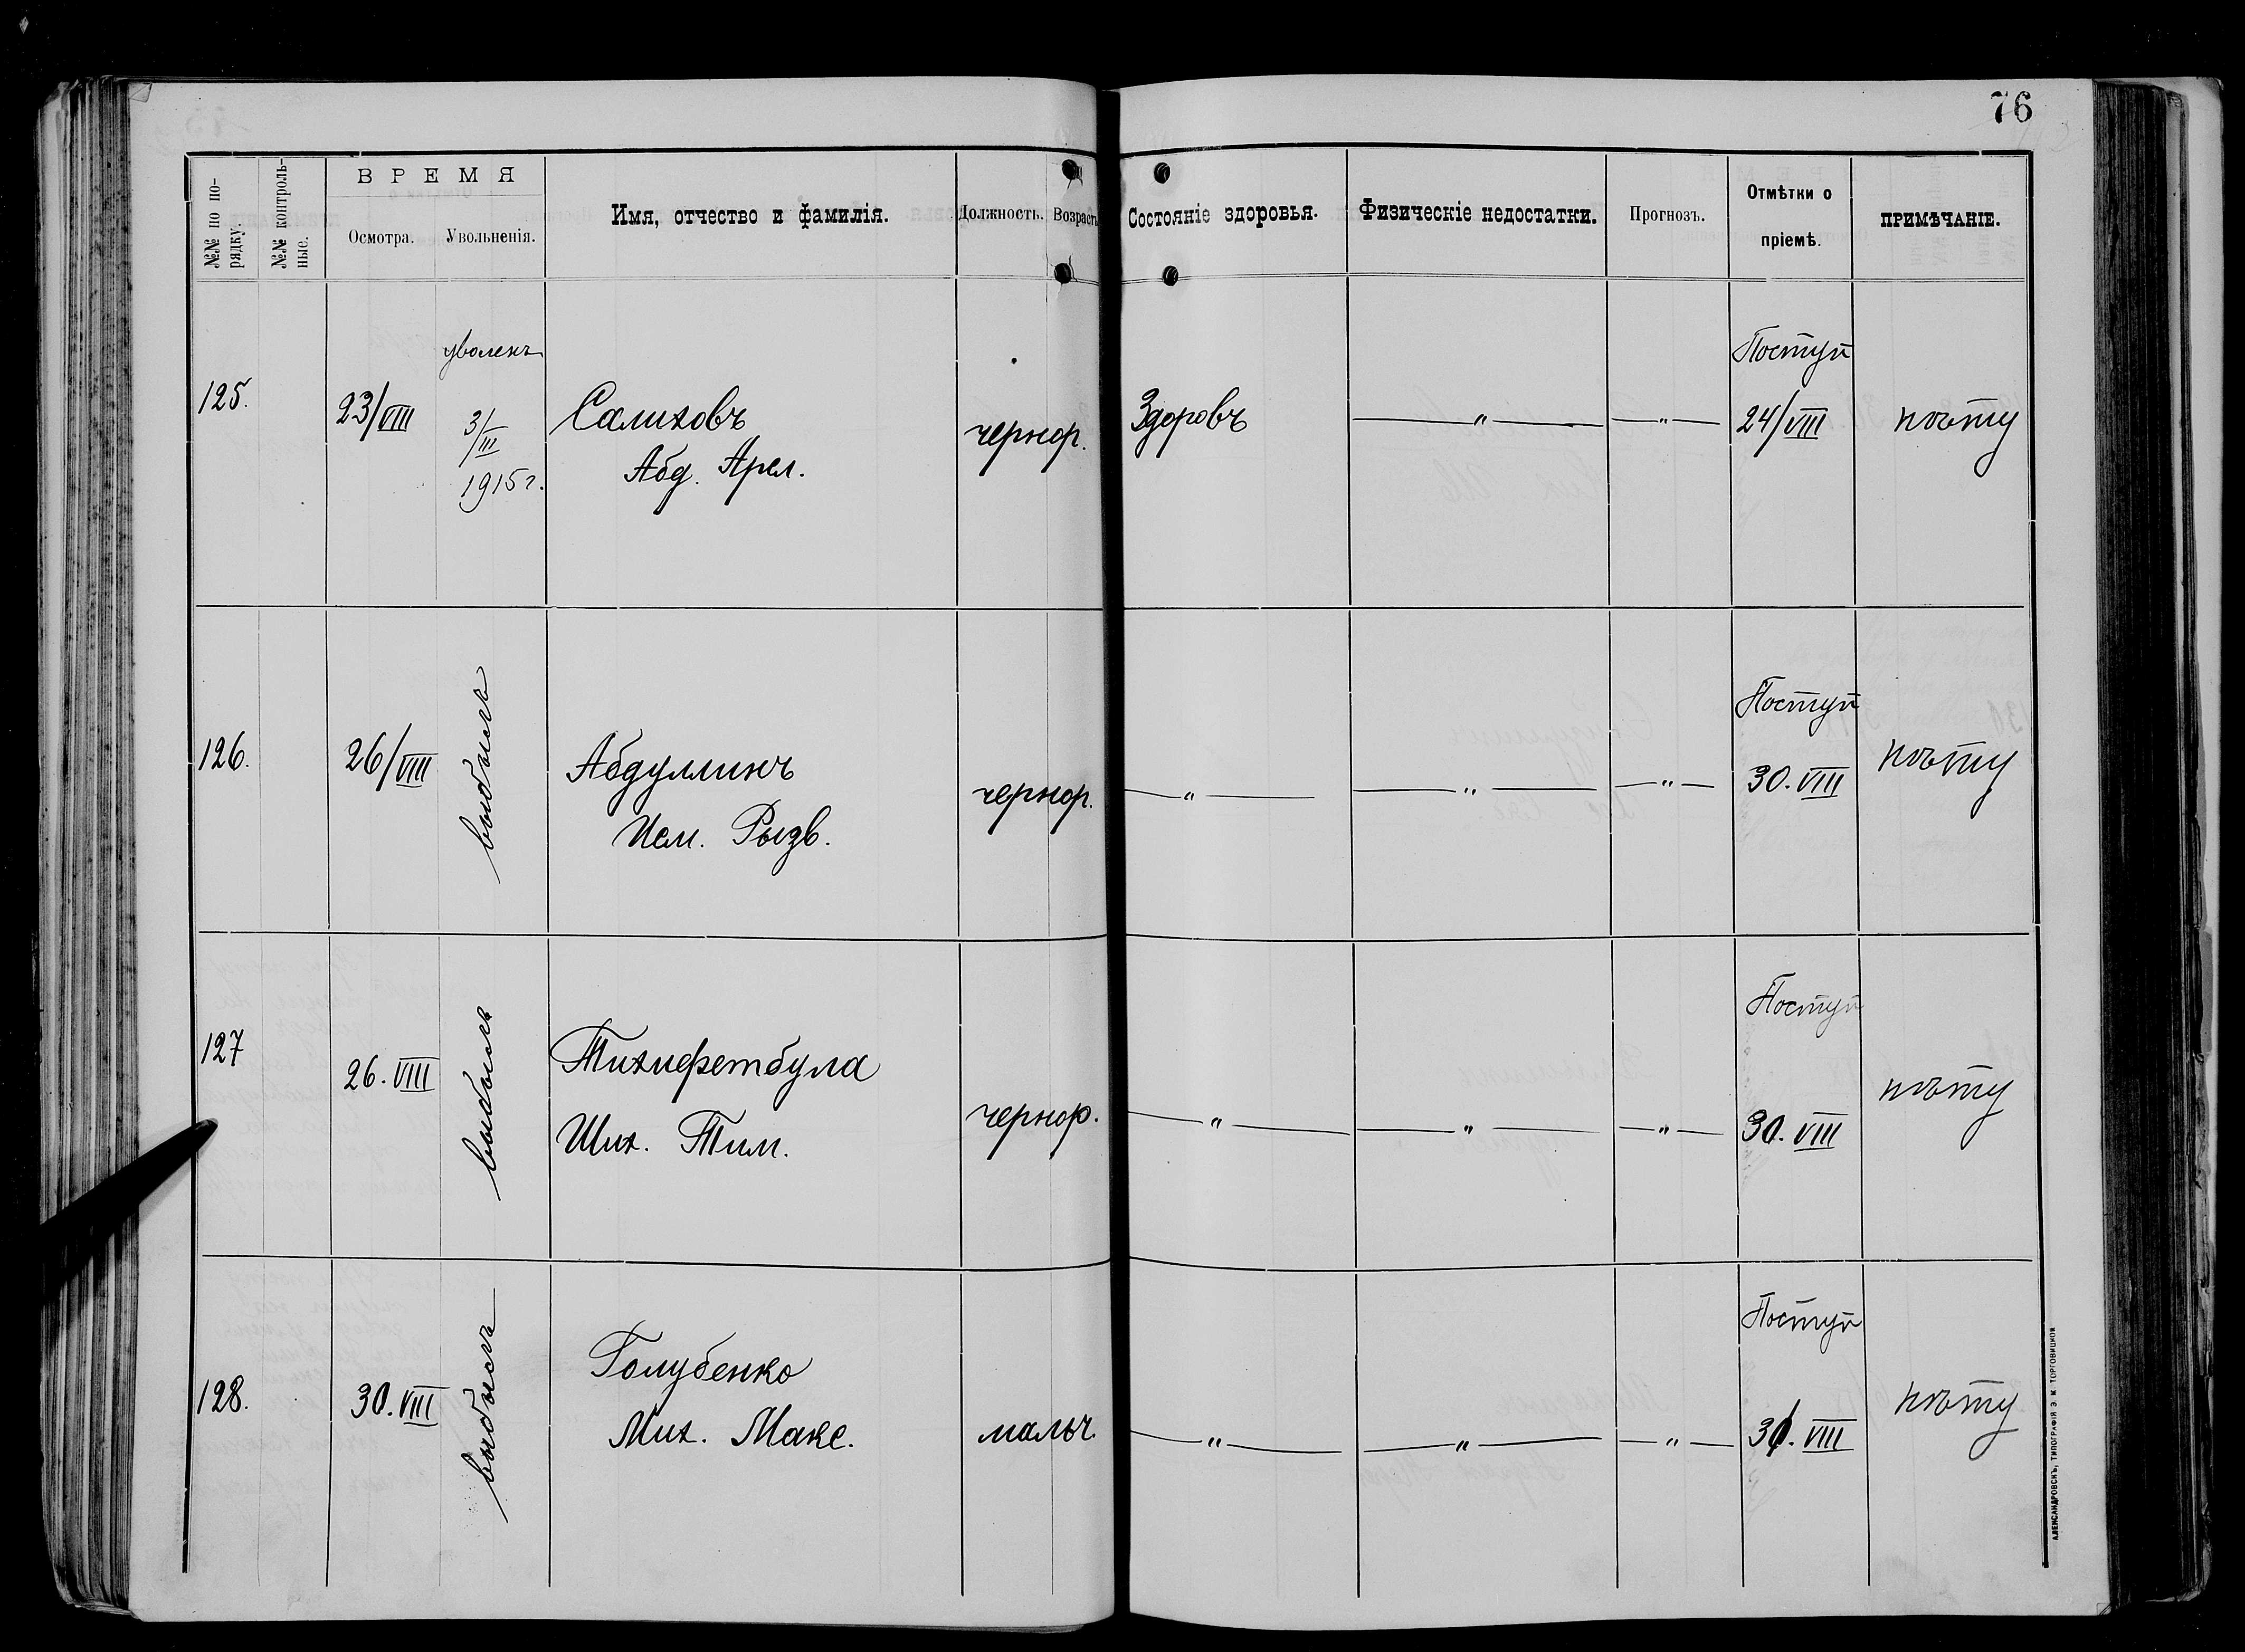 76
№№ по по-
рядку.
№№ контроль-
ные.
ВРЕМЯ
Осмотра.
Увольненія.
Имя, отчество и фамилія.
Должность.
Возрастъ
Состояніе здоровья.
Физическіе недостатки.
Прогнозъ.
Отмѣтки о
пріемѣ.
ПРИМѢЧАНІЕ.
125.
23/VIII
уволенъ
3/III
1915 г.
Салиховъ
Абд. Арсл.
чернор.
Здоровъ
— " —
— " —
Поступ
24/VIII
126.
26/VIII
выбылъ
Абдуллинъ
Исм. Рызв.
чернор.
— " —
— " —
— " —
Поступ
30. VIII
127
26. VIII
выбылъ
Тихифетбула
Ших. Тим.
чернор.
— " —
— " —
— " —
Поступ
30. VIII
128.
30. VIII
выбылъ
Голубенко
Мих. Макс.
мальч.
— " —
— " —
— " —
Поступ
31. VIII
АЛЕКСАНДРОВСКЪ, ТИПОГРАФІЯ Э. М. ТОРГОВИЦКОЙ